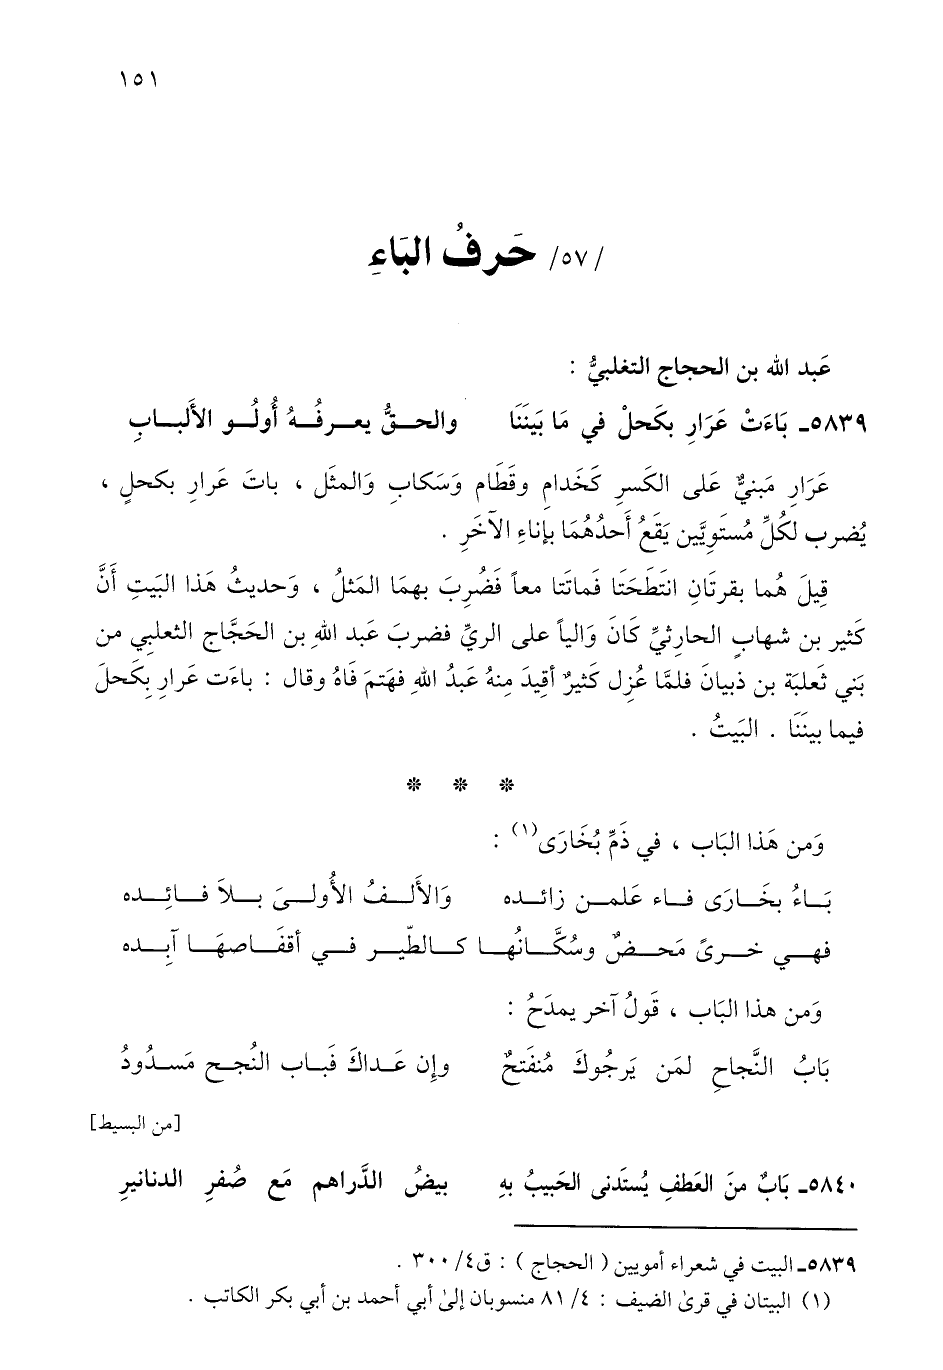 ١٥١
/٥٧/ حَرفُ البَاءِ
عَبد الله بن الحجاج التغلبيُّ :
٥٨٣٩ـ بَاءَتْ عَرَارِ بكَحلْ في مَا بَينَنَا والحـقُّ يعـرفُـهُ أُولُـو الأَلبـابِ
عَرَارِ مَبنيٌّ عَلى الكَسرِ كَخَدامِ وقَطَام وَسَكابِ وَالمثَل ، باتَ عَرارِ بكَحلٍ ،
يُضرب لكُلِّ مُستَويَّين يَقَعُ أَحدُهُمَا بإناءِ الآخَرِ .
قِيلَ هُما بقرتَانِ انتَطَحَتَا فَماتَتا معاً فَضُرِبَ بهمَا المَثلُ ، وَحديثُ هَذا البَيتِ أَنَّ
كَثير بن شهابٍ الحارثيِّ كَانَ وَالياً على الريِّ فضربَ عَبد اللهِ بن الحَجَّاج الثعلبي من
بَني ثَعلبَة بن ذبيانَ فلمَّا عُزِل كَثيرٌ أقيدَ مِنهُ عَبدُ اللهِ فهَتمَ فَاهُ وقال : باءَت عَرارِ بِكَحلَ
فيما بينَنَا . البَيتُ .
* * *
وَمن هَذا البَاب ، في ذَمِّ بُخَارَى(١) :
بَـاءُ بخَـارَى فـاء عَلمـن زائـده وَالألَـفُ الأُولـىَ بـلاَ فـائِـده
فهـي خـرىً مَحـضٌ وسُكَّـانُهـا كـالطَّيـر فـي أقفَـاصِهَـا آبـده
وَمن هذا البَاب ، قَولُ آخر يمدَحُ :
بَابُ النَّجاحِ لمَن يَرجُوكَ مُنفَتحٌ وإن عَـداكَ فَبـاب النُجـح مَسـدُودُ
[من البسيط]
٥٨٤٠ـ بَابٌ منَ العَطفِ يُستَدنى الحَبيبُ بهِ بيضُ الدَّراهم مَع صُفرِ الدنانيرِ
٥٨٣٩ـ البيت في شعراء أمويين ( الحجاج ) : ق٤/ ٣٠٠ .
(١) البيتان في قرىٰ الضيف : ٤/ ٨١ منسوبان إلىٰ أبي أحمد بن أبي بكر الكاتب .